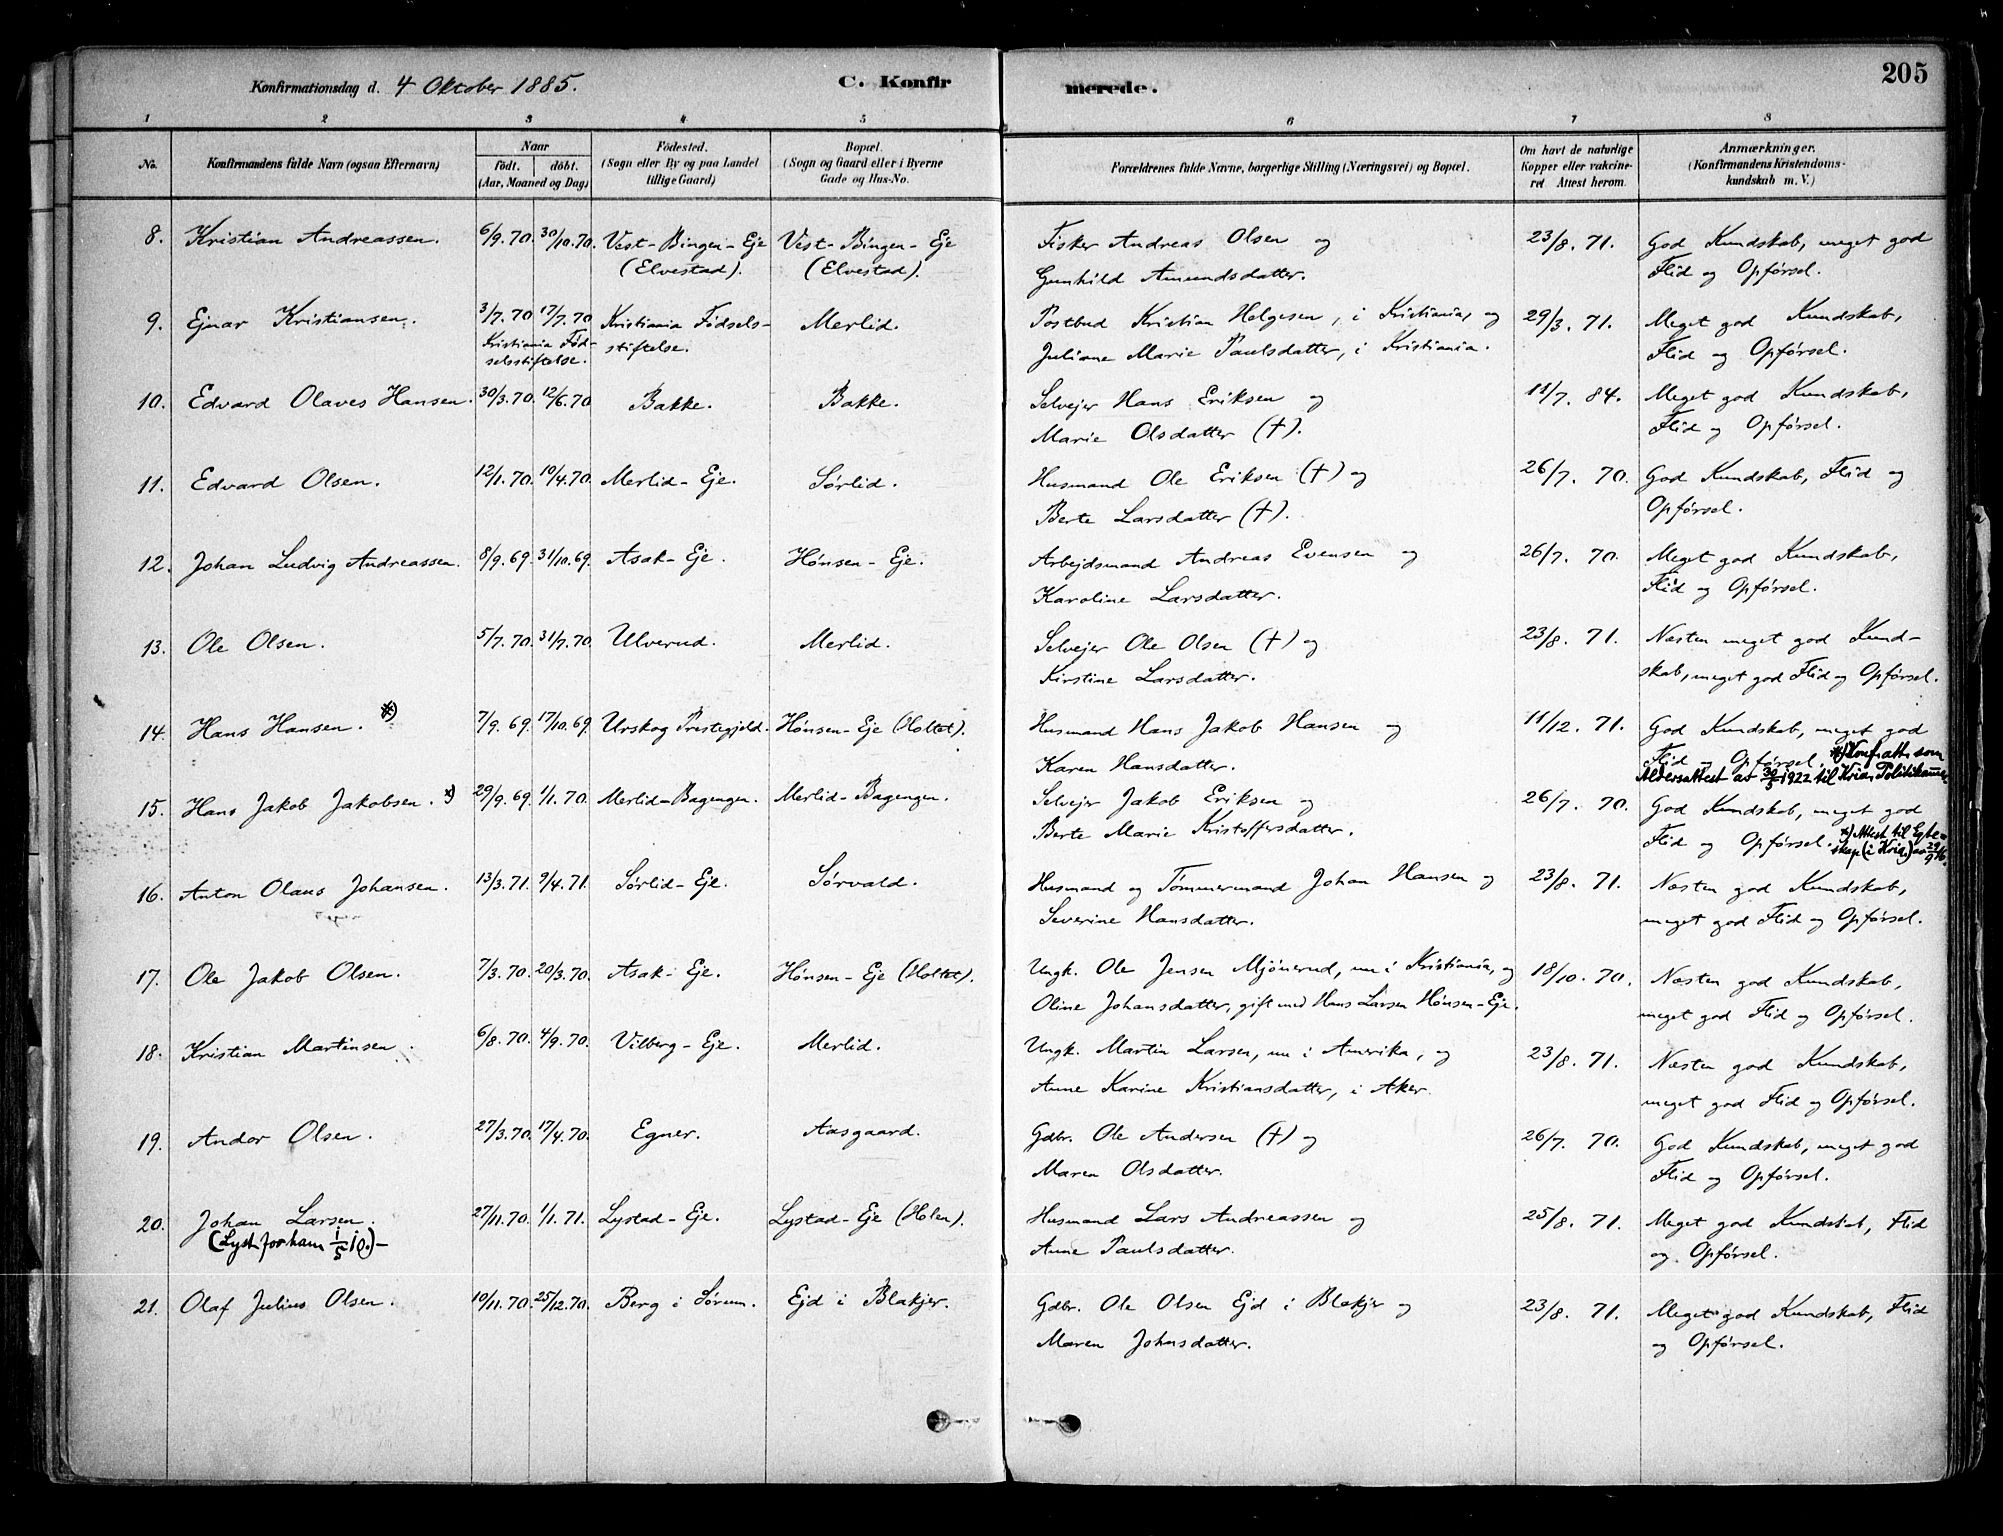 Konfirmationsdag d. 4 Oktober 1885. C. Konfir merede. 205
1 2 3 4 5 6 7 8
No. Konfirmandens fulde Navn (ogsaa Efternavn) Naar født. døbt. (Aar, Maaned og Dag) Fødested. (Sogn eller By og paa Landet tillige Gaard) Bopæl. (Sogn og Gaard eller i Byerne Gade og Hus-No. Forældrenes fulde Navne, borgerlige Stilling (Næringsvei) og Bopæl. Om havt de naturlige Kopper eller vakcineret Attest herom. Anmærkninger. (Konfirmandens Kristendomskundskab m. V.)
8. Kristian Andreassen. 6/9. 70. 30/10. 70. Vest-Bingen-Eje Vest-Bingen-Eje Fisker Andreas Olsen og 23/8. 71. God Kundskab, meget god
(Elvestad). (Elvestad). Gunhild Amundsdatter. Flid og Opførsel.
9. Ejnar Kristiansen. 3/7. 70 17/7. 70 Kristiania Fødsels- Merlid. Postbud Kristian Helgesen, i Kristiania, og 29/3. 71. Meget god Kundskab,
Kristiania Fød- stiftelse. Juliane Marie Paulsdatter, i Kristiania. Flid og Opførsel.
selsstiftelse.
10. Edvard Olaves Hansen. 30/3. 70. 12/6. 70 Bakke. Bakke. Selvejer Hans Eriksen og 11/7. 84. Meget god Kundskab,
Marie Olsdatter (†). Flid og Opførsel.
11. Edvard Olsen. 12/1. 70. 10/4. 70 Merlid-Eje. Sørlid. Husmand Ole Eriksen (†) og 26/7. 70. God Kundskab, Flid og
Berte Larsdatter (†). Opførsel.
12. Johan Ludvig Andreassen. 8/9. 69. 31/10. 69. Asak-Eje. Hønsen-Eje. Arbejdsmand Andreas Evensen og 26/7. 70. Meget god Kundskab,
Karoline Larsdatter. Flid og Opførsel.
13. Ole Olsen. 5/7. 70. 31/7. 70. Ulverud. Merlid. Selvejer Ole Olsen (†) og 23/8. 71. Næsten meget god Kund-
Kirstine Larsdatter. skab, meget god Flid og Opførsel.
14. Hans Hansen. *) 7/9. 69. 17/10. 69. Urskog Prestegjeld. Hønsen-Eje (Holtet). Husmand Hans Jakob Hansen og 11/12. 71. God Kundskab, meget god
Karen Hansdatter. Flid og Opførsel. *) Konf.att. som
Aldersattest av 30/3 1922 til Kria. Politikammer
15. Hans Jakob Jakobsen. *) 29/9. 69. 1/1. 70. Merlid-Bagengen. Merlid-Bagengen. Selvejer Jakob Eriksen og 26/7. 70. God Kundskab, meget god
Berte Marie Kristoffersdatter. Flid og Opførsel. *) Attest til Egte-
skap (i Kria.)
16. Anton Olaus Johansen. 13/3. 71. 9/4. 71. Sørlid-Eje. Sørvald. Husmand og Tømmermand Johan Hansen og 23/8. 71. Næsten god Kundskab,
Severine Hansdatter. meget god Flid og Opførsel.
17. Ole Jakob Olsen. 7/3. 70. 20/3. 70. Asak-Eje. Hønsen-Eje (Holtet). Ungk. Ole Jensen Mjønerud, nu i Kristiania, og 18/10. 70. Næsten god Kundskab,
Oline Johansdatter, gift med Hans Larsen Hønsen-Eje. meget god Flid og Opførsel.
18. Kristian Martinsen. 6/8. 70. 4/9. 70. Vilberg-Eje. Merlid. Ungk. Martin Larsen, nu i Amerika, og 23/8. 71. Næsten god Kundskab,
Anne Karine Kristiansdatter, i Aker. meget god Flid og Opførsel.
19. Andor Olsen. 27/3. 70. 17/4. 70. Egner. Aasgaard. Gdbr. Ole Andersen (†) og 26/7. 70. God Kundskab, meget god
Maren Olsdatter. Flid og Opførsel.
20. Johan Larsen. 27/11. 70. 1/1. 71. Lystad-Eje. Lystad-Eje (Holen). Husmand Lars Andreassen og 25/8. 71. Meget god Kundskab, Flid
(Lyst for ham 1/5 10.)- Anne Paulsdatter. og Opførsel.
21. Olaf Julius Olsen. 10/11. 70. 25/12. 70. Berg i Sørum. Ejd i Blakjer. Gdbr. Ole Olsen Ejd i Blakjer og 23/8. 71. Meget god Kundskab, Flid
Maren Johnsdatter. og Opførsel.